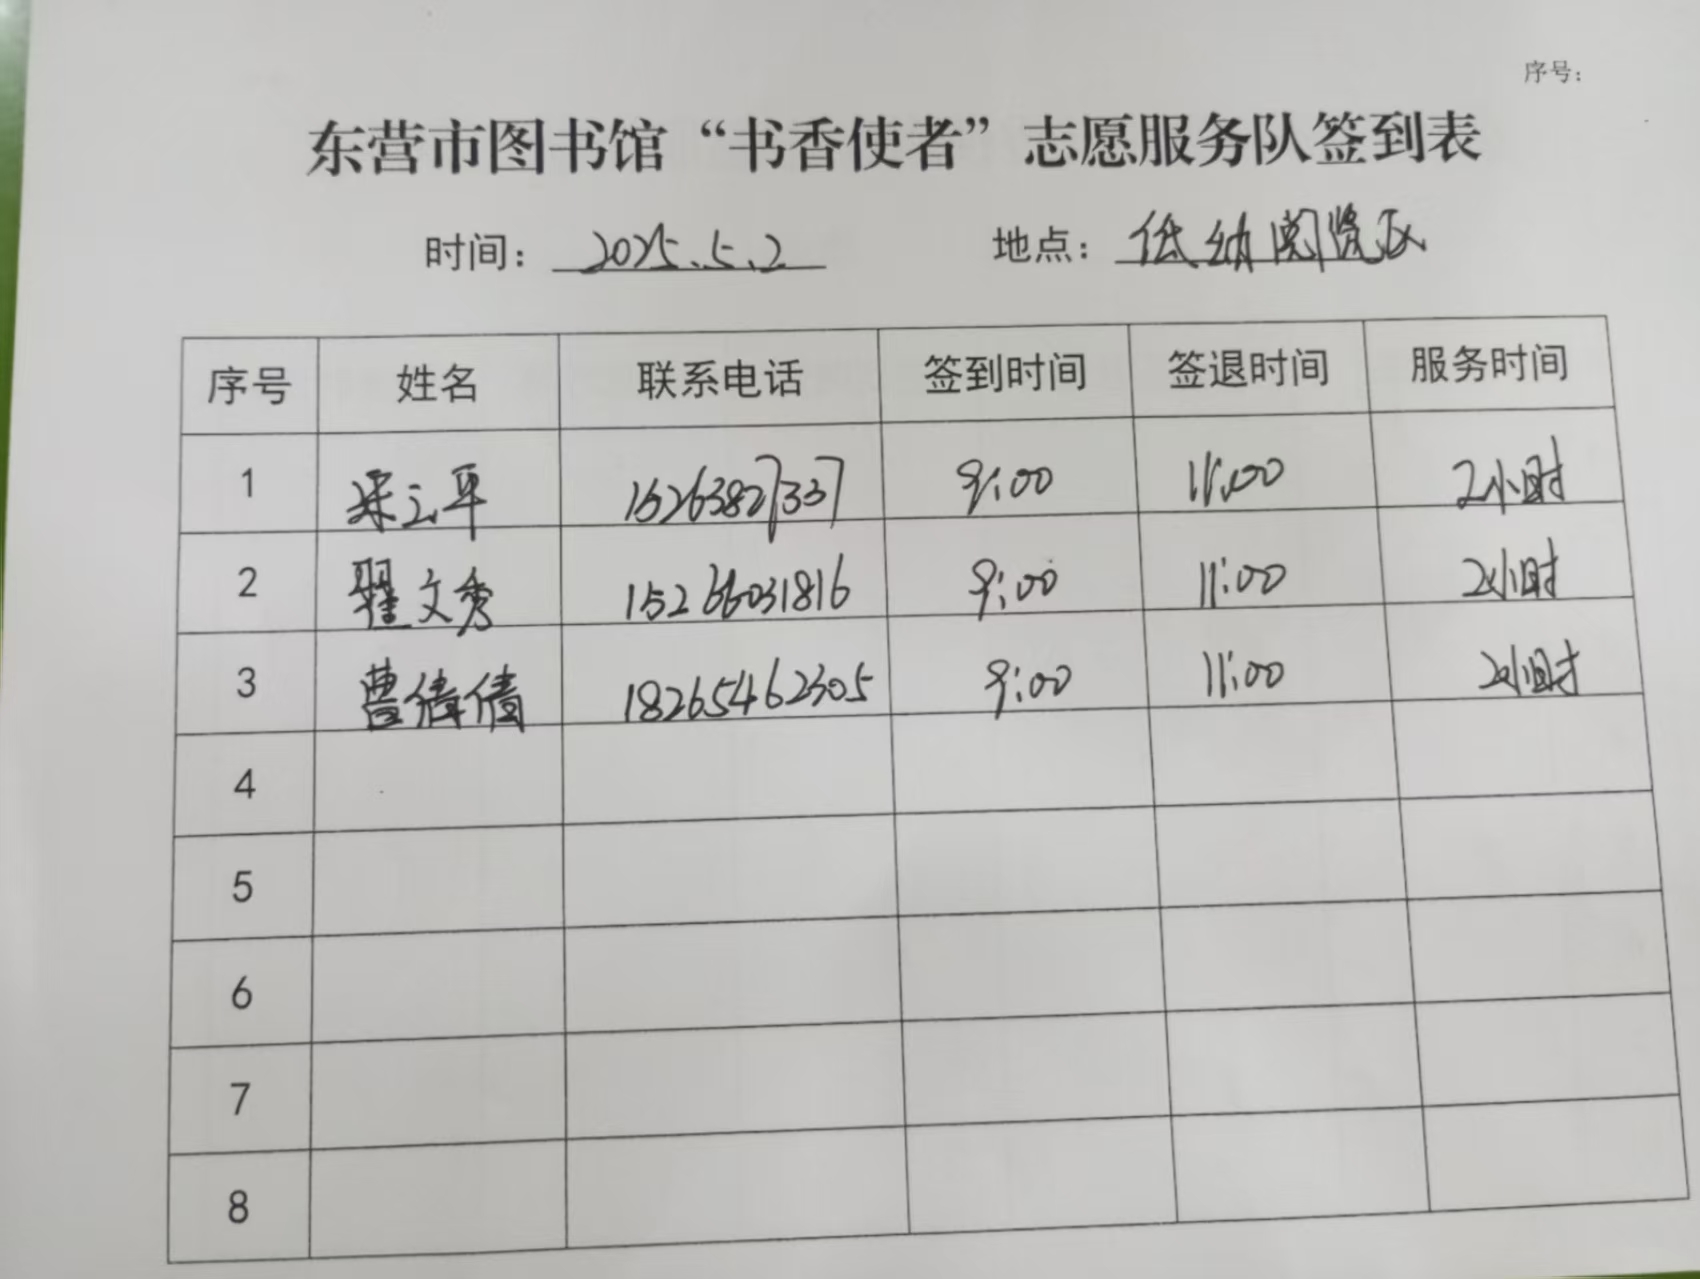 序号：
东营市图书馆“书香使者”志愿服务队签到表
时间：2025.5.2 地点：低幼阅览区
序号 姓名 联系电话 签到时间 签退时间 服务时间
1 平 15263827337 9:00 11:00 2小时
2 翟文秀 15266031816 9:00 11:00 2小时
3 曹倩倩 18265462305 9:00 11:00 2小时
4
5
6
7
8